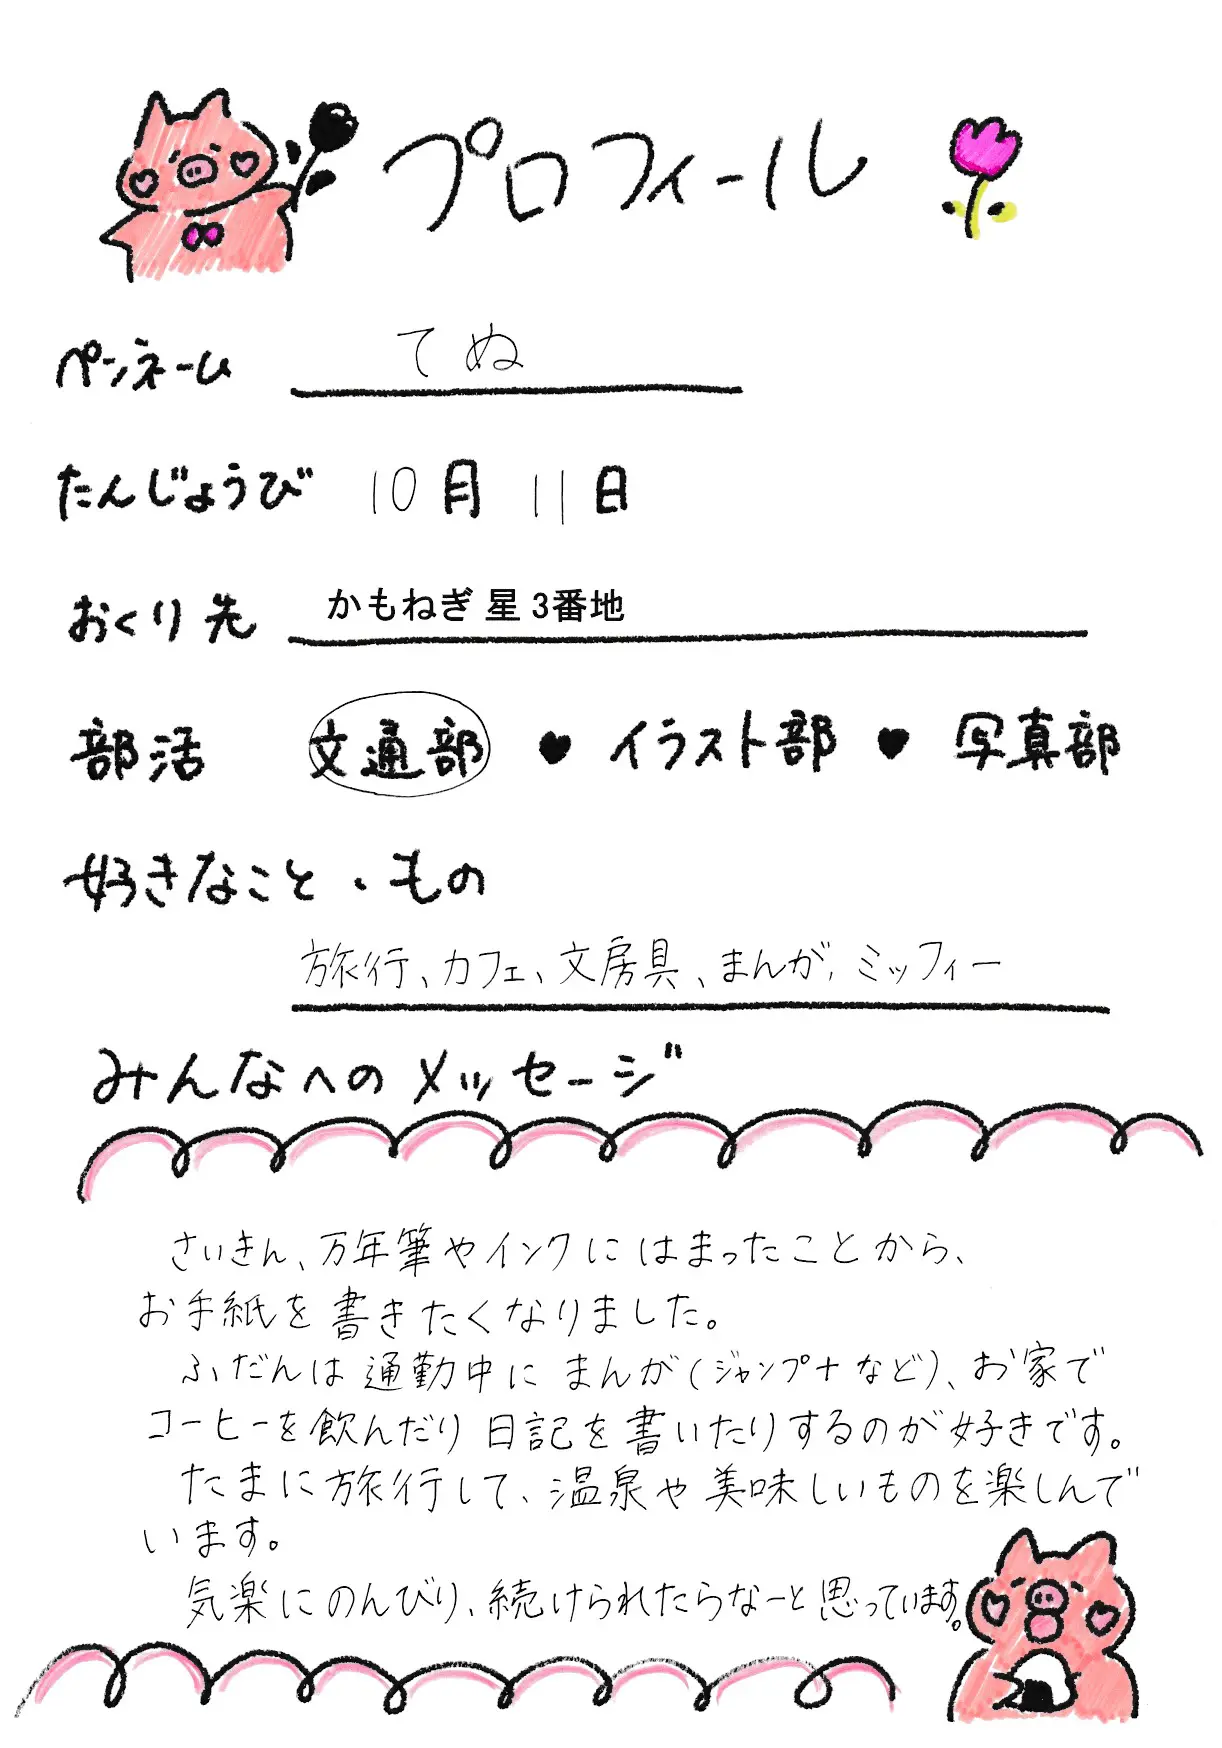 プロフィール
ペンネーム てぬ
たんじょうび 10月 11日
おくり先 かもねぎ 星 3番地
部活 文通部 ♥ イラスト部 ♥ 写真部
好きなこと・もの
旅行、カフェ、文房具、まんが、ミッフィー
みんなへのメッセージ
さいきん、万年筆やインクにはまったことから、
お手紙を書きたくなりました。
ふだんは通勤中にまんが(ジャンプ+など)、お家で
コーヒーを飲んだり日記を書いたりするのが好きです。
たまに旅行して、温泉や美味しいものを楽しんで
います。
気楽にのんびり、続けられたらなーと思っています。